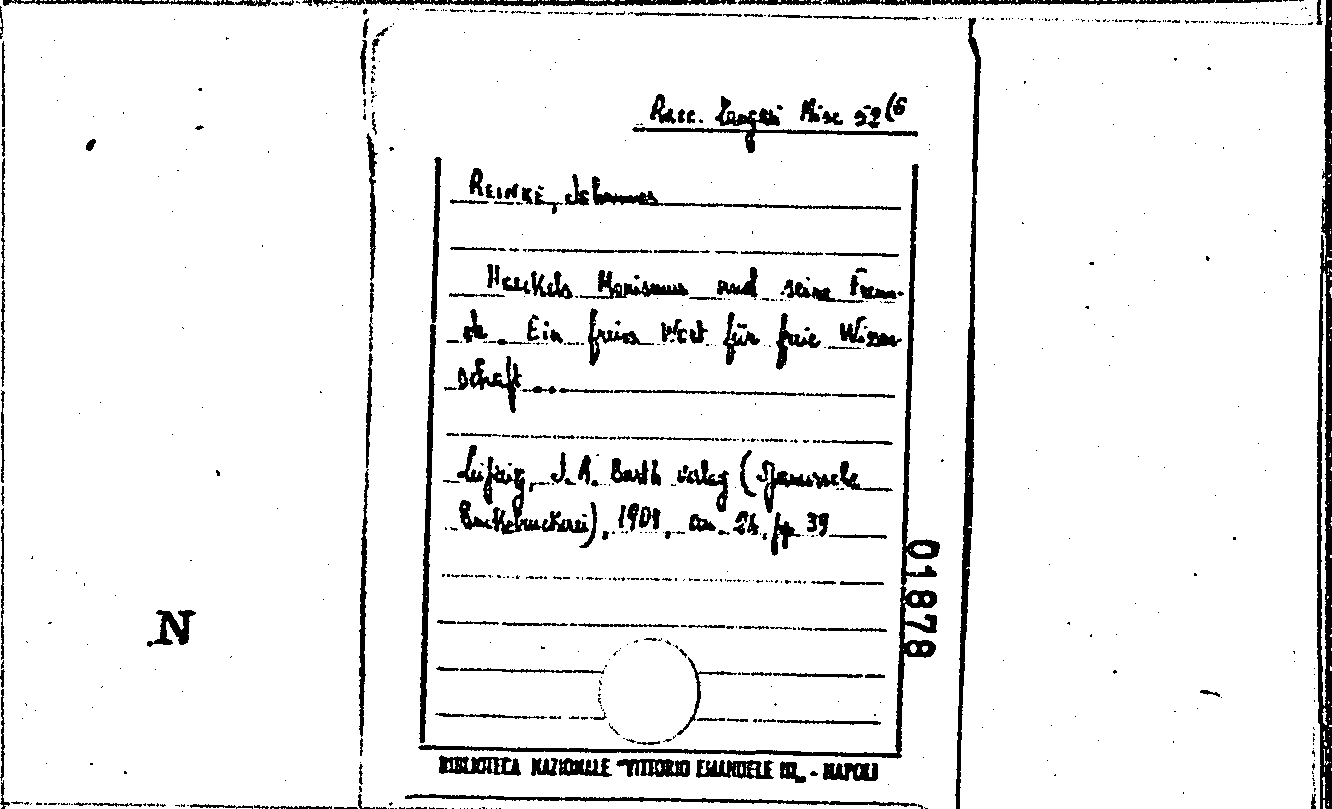 Racc. Misc 52(6
REINKE, Johannes
Haeckels Monismus und seine Freun-
de. Ein freies Wort für freie Wissen
schaft...
Leipzig, J. A. Barth verlag (Spamersche
Buchdruckerei), 1907, cm. 24, pp 39
01878
N
BIBLIOTECA NAZIONALE "VITTORIO EMANUELE III" - NAPOLI